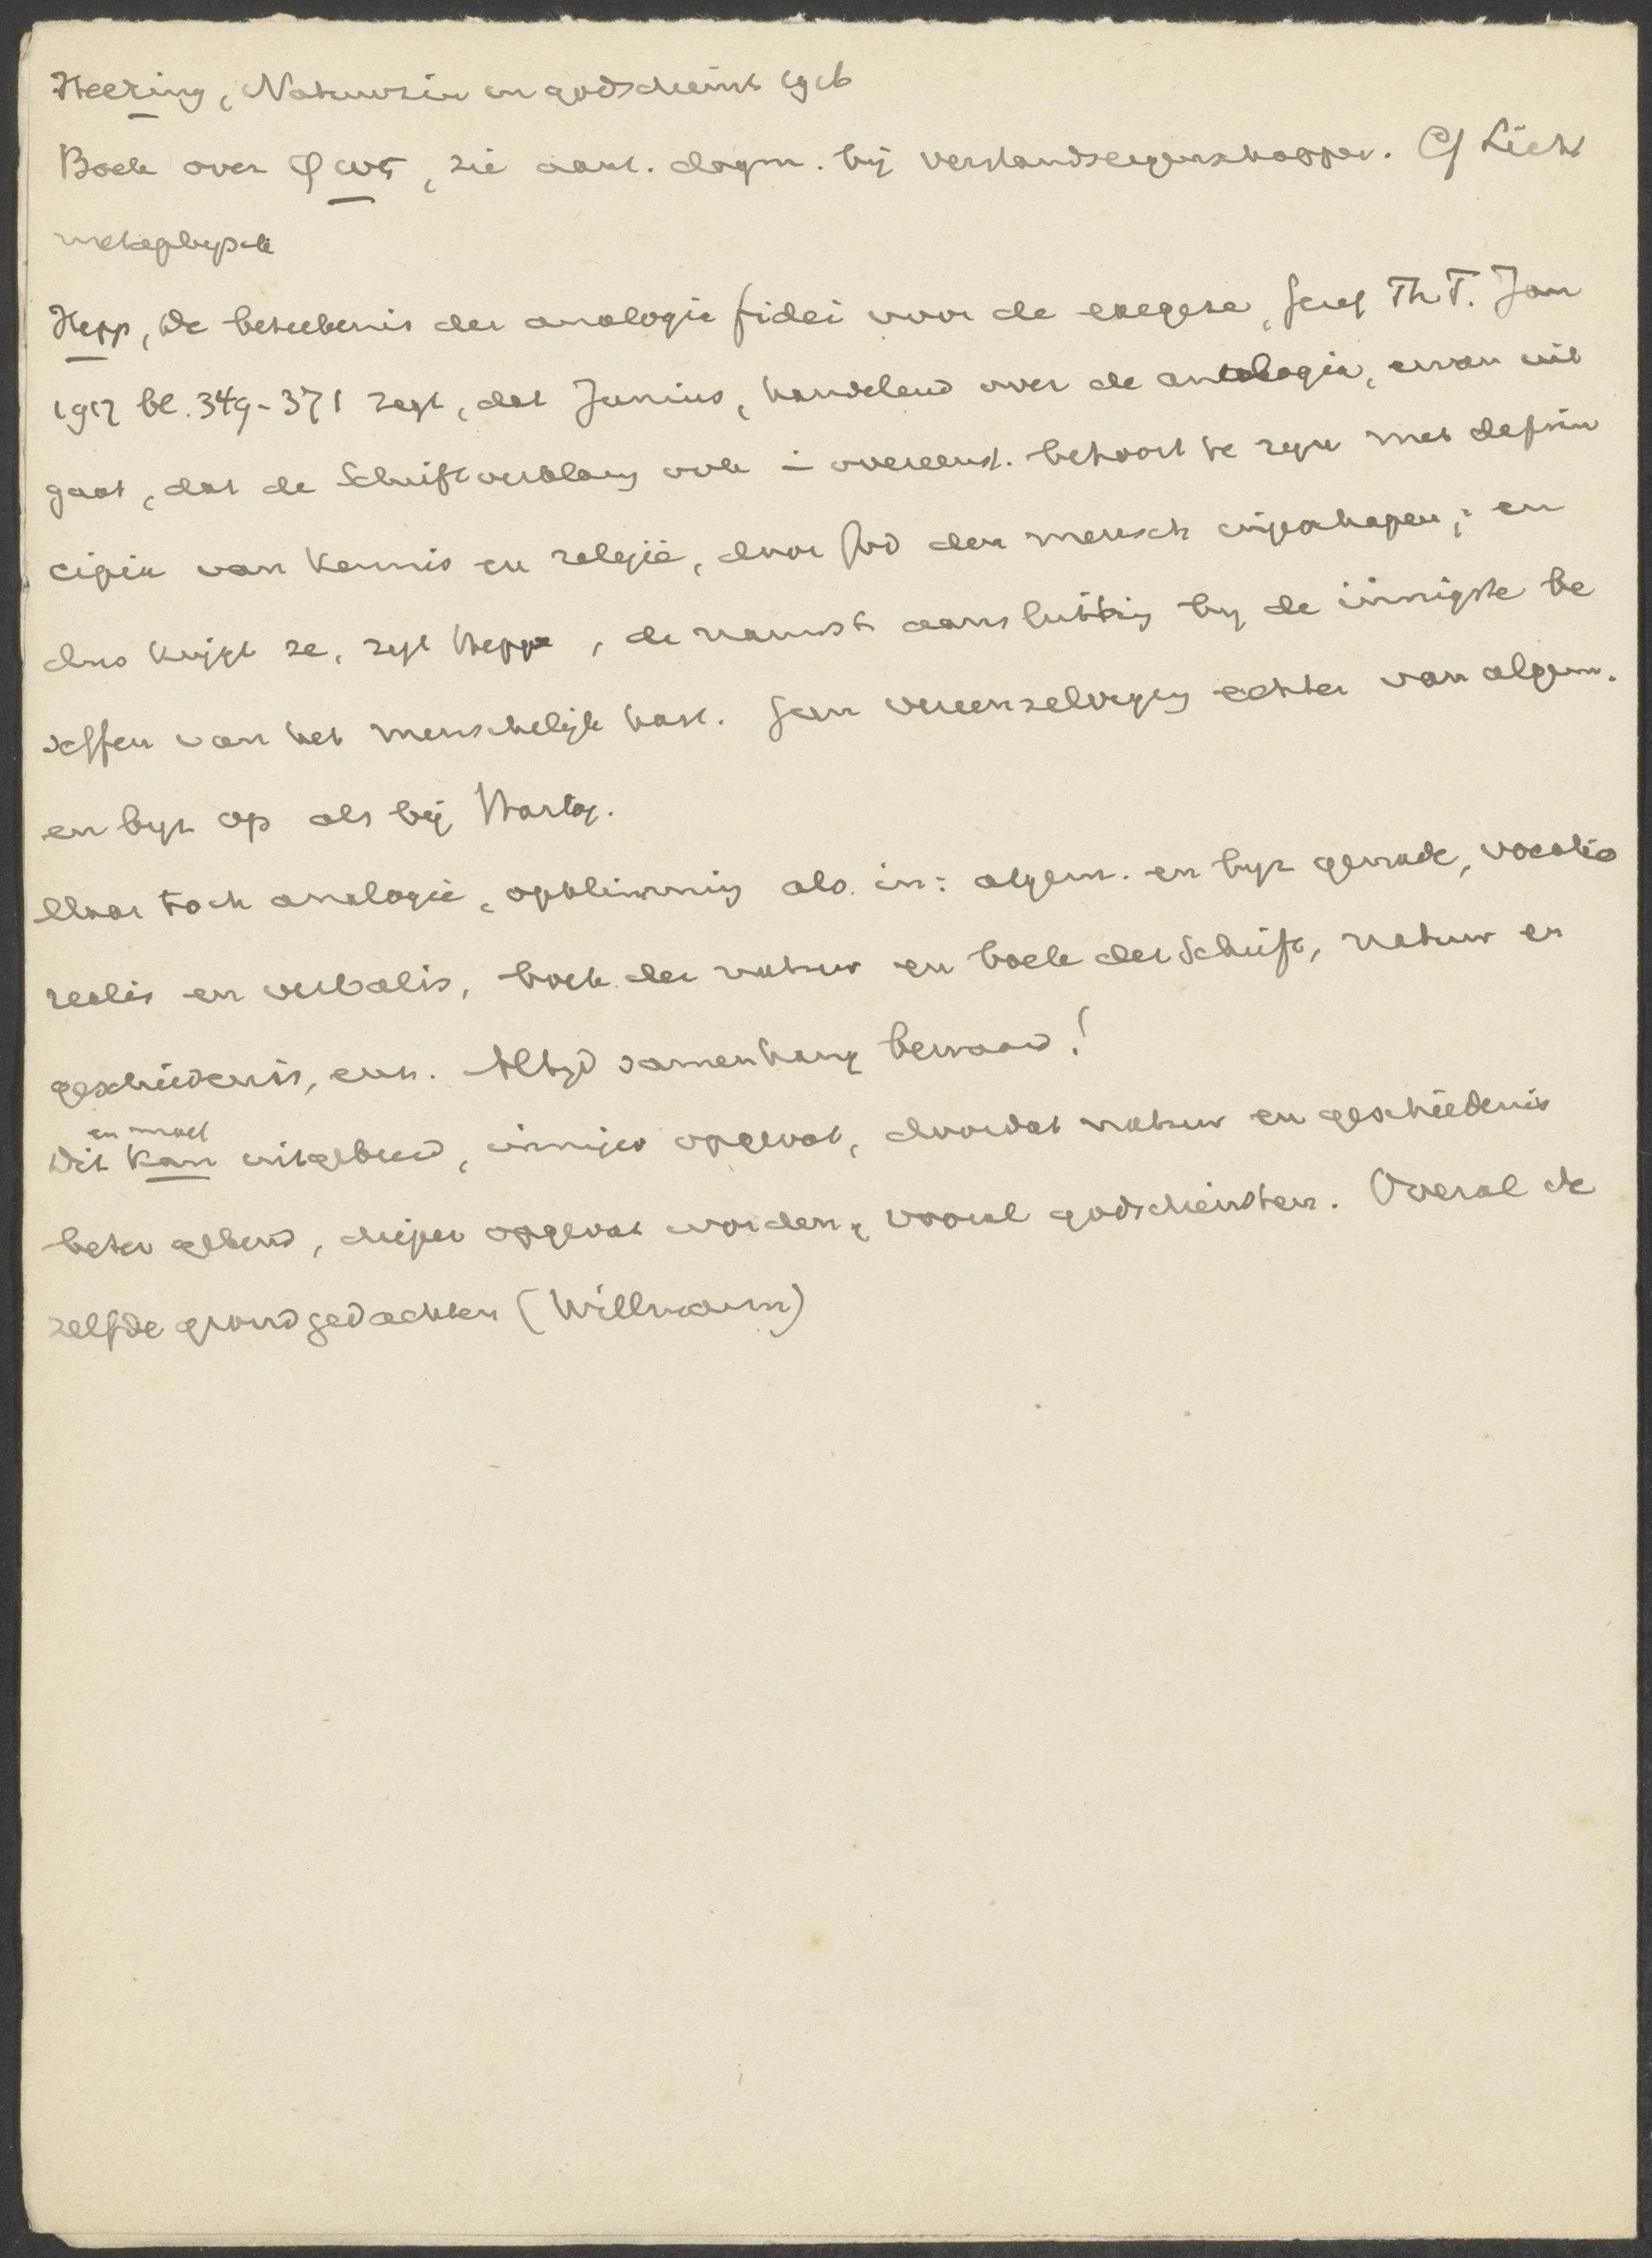 Heering, Natuurzin en godsdienst 1916
Boek over φως, zie aant. dogm. bij verstandseigenschappen. Cf Licht
metaphysik
Hepp, De beteekenis der analogie fidei voor de exegese, Geref Th. T. Jan
1917 bl. 349-371 zegt, dat Junius, handelend over de analogia, ervan uit
gaat, dat de Schriftverklaring ook in overeenst. behoort te zijn met de prin
cipia van kennis en religie, door God den mensch ingeschapen; en
dus krijgt ze, zegt Hepp, de nauwste aansluiting bij de innigste be
seffen van het menschelijk hart. Geen vereenzelviging echter van algem.
en byz op als bij Hartog.
Maar toch analogie, opklimming als in: algem. en byz genade, vocatio
realis en verbalis, boek der natuur en boek der Schrift, natuur en
geschiedenis, enz. Altijd samenhang bewaard!
en moet
Dit kan uitgebreid, inniger opgevat, doordat natuur en geschiedenis
beter gekend, dieper opgevat worden, vooral godsdiensten. Overal de
zelfde grondgedachten (Willmann)